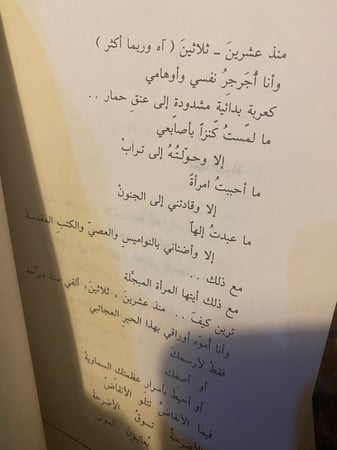 منذ عشرينَ ــ ثلاثينَ ( آه وربما أكثر )
وأنا أُجَرجِرُ نفسي وأوهامي
كعربةٍ بدائيةٍ مشدودةٍ إلى عنقِ حمار ..
ما لمستُ كنزاً بأصابعي
إلا وحوّلتُهُ إلى ترابْ
ما أحببتُ امرأةً
إلا وقادتني إلى الجنونْ
ما عبدتُ إلهاً
إلا وأضناني بالنواميسِ والعصيّ والكتبِ المقدسة
مع ذلك ..
مع ذلك أيتها المرأة المبجّلة
ترين كيفَ .. منذ عشرينَ، ثلاثينَ، ألفي سنة
وأنا أموّه أوراقي بهذا الحبرِ العجائبي
فقط لأرسمكَ
أو أصفك
أو أحيطَ بأسرارِ عظمتكَ السماوية
فيما الأنقاضُ تتلو الأنقاضْ
الأضرحةُ تسوقُ الأضرحة